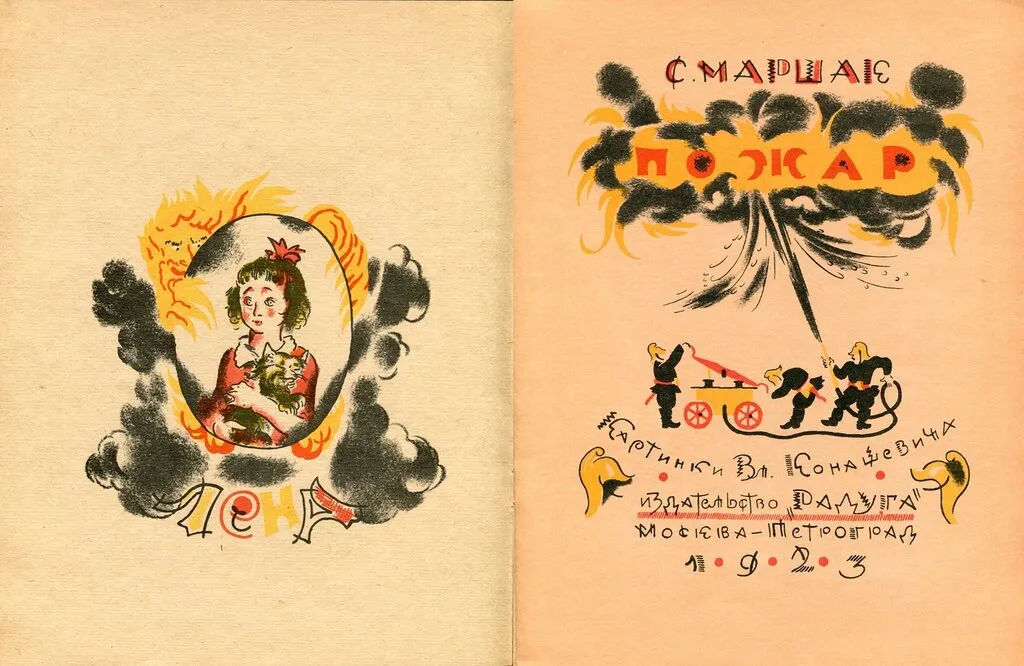 ЛЕНА
С. МАРШАК
ПОЖАР
КАРТИНКИ ВЛ. КОНАШЕВИЧА
ИЗДАТЕЛЬСТВО „РАДУГА“
МОСКВА – ПЕТРОГРАД
1 • 9 • 2 • 3